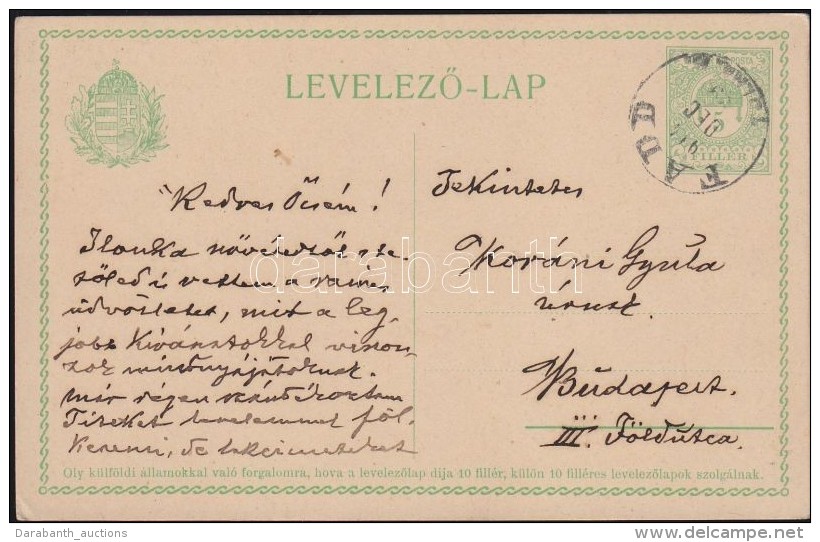 LEVELEZŐ-LAP
FADD
DEC
5
FILLÉR
Kedves Öcsém!
Ilonka nővéredtől és te-
tőled is vettem a szives
üdvözletet, mit a leg-
jobb kivánatokkal viszon-
zok mindnyájatoknak.
Már régen szándékoztam
Titeket levelemmel föl-
keresni, de
Tekintetes
Koráni Gyula
úrnak
Budapest.
III. Földutca.
Oly külföldi államokkal való forgalomra, hova a levelezőlap díja 10 fillér, külön 10 filléres levelezőlapok szolgálnak.
darabanth
Darabanth_auctions
delcampe.net